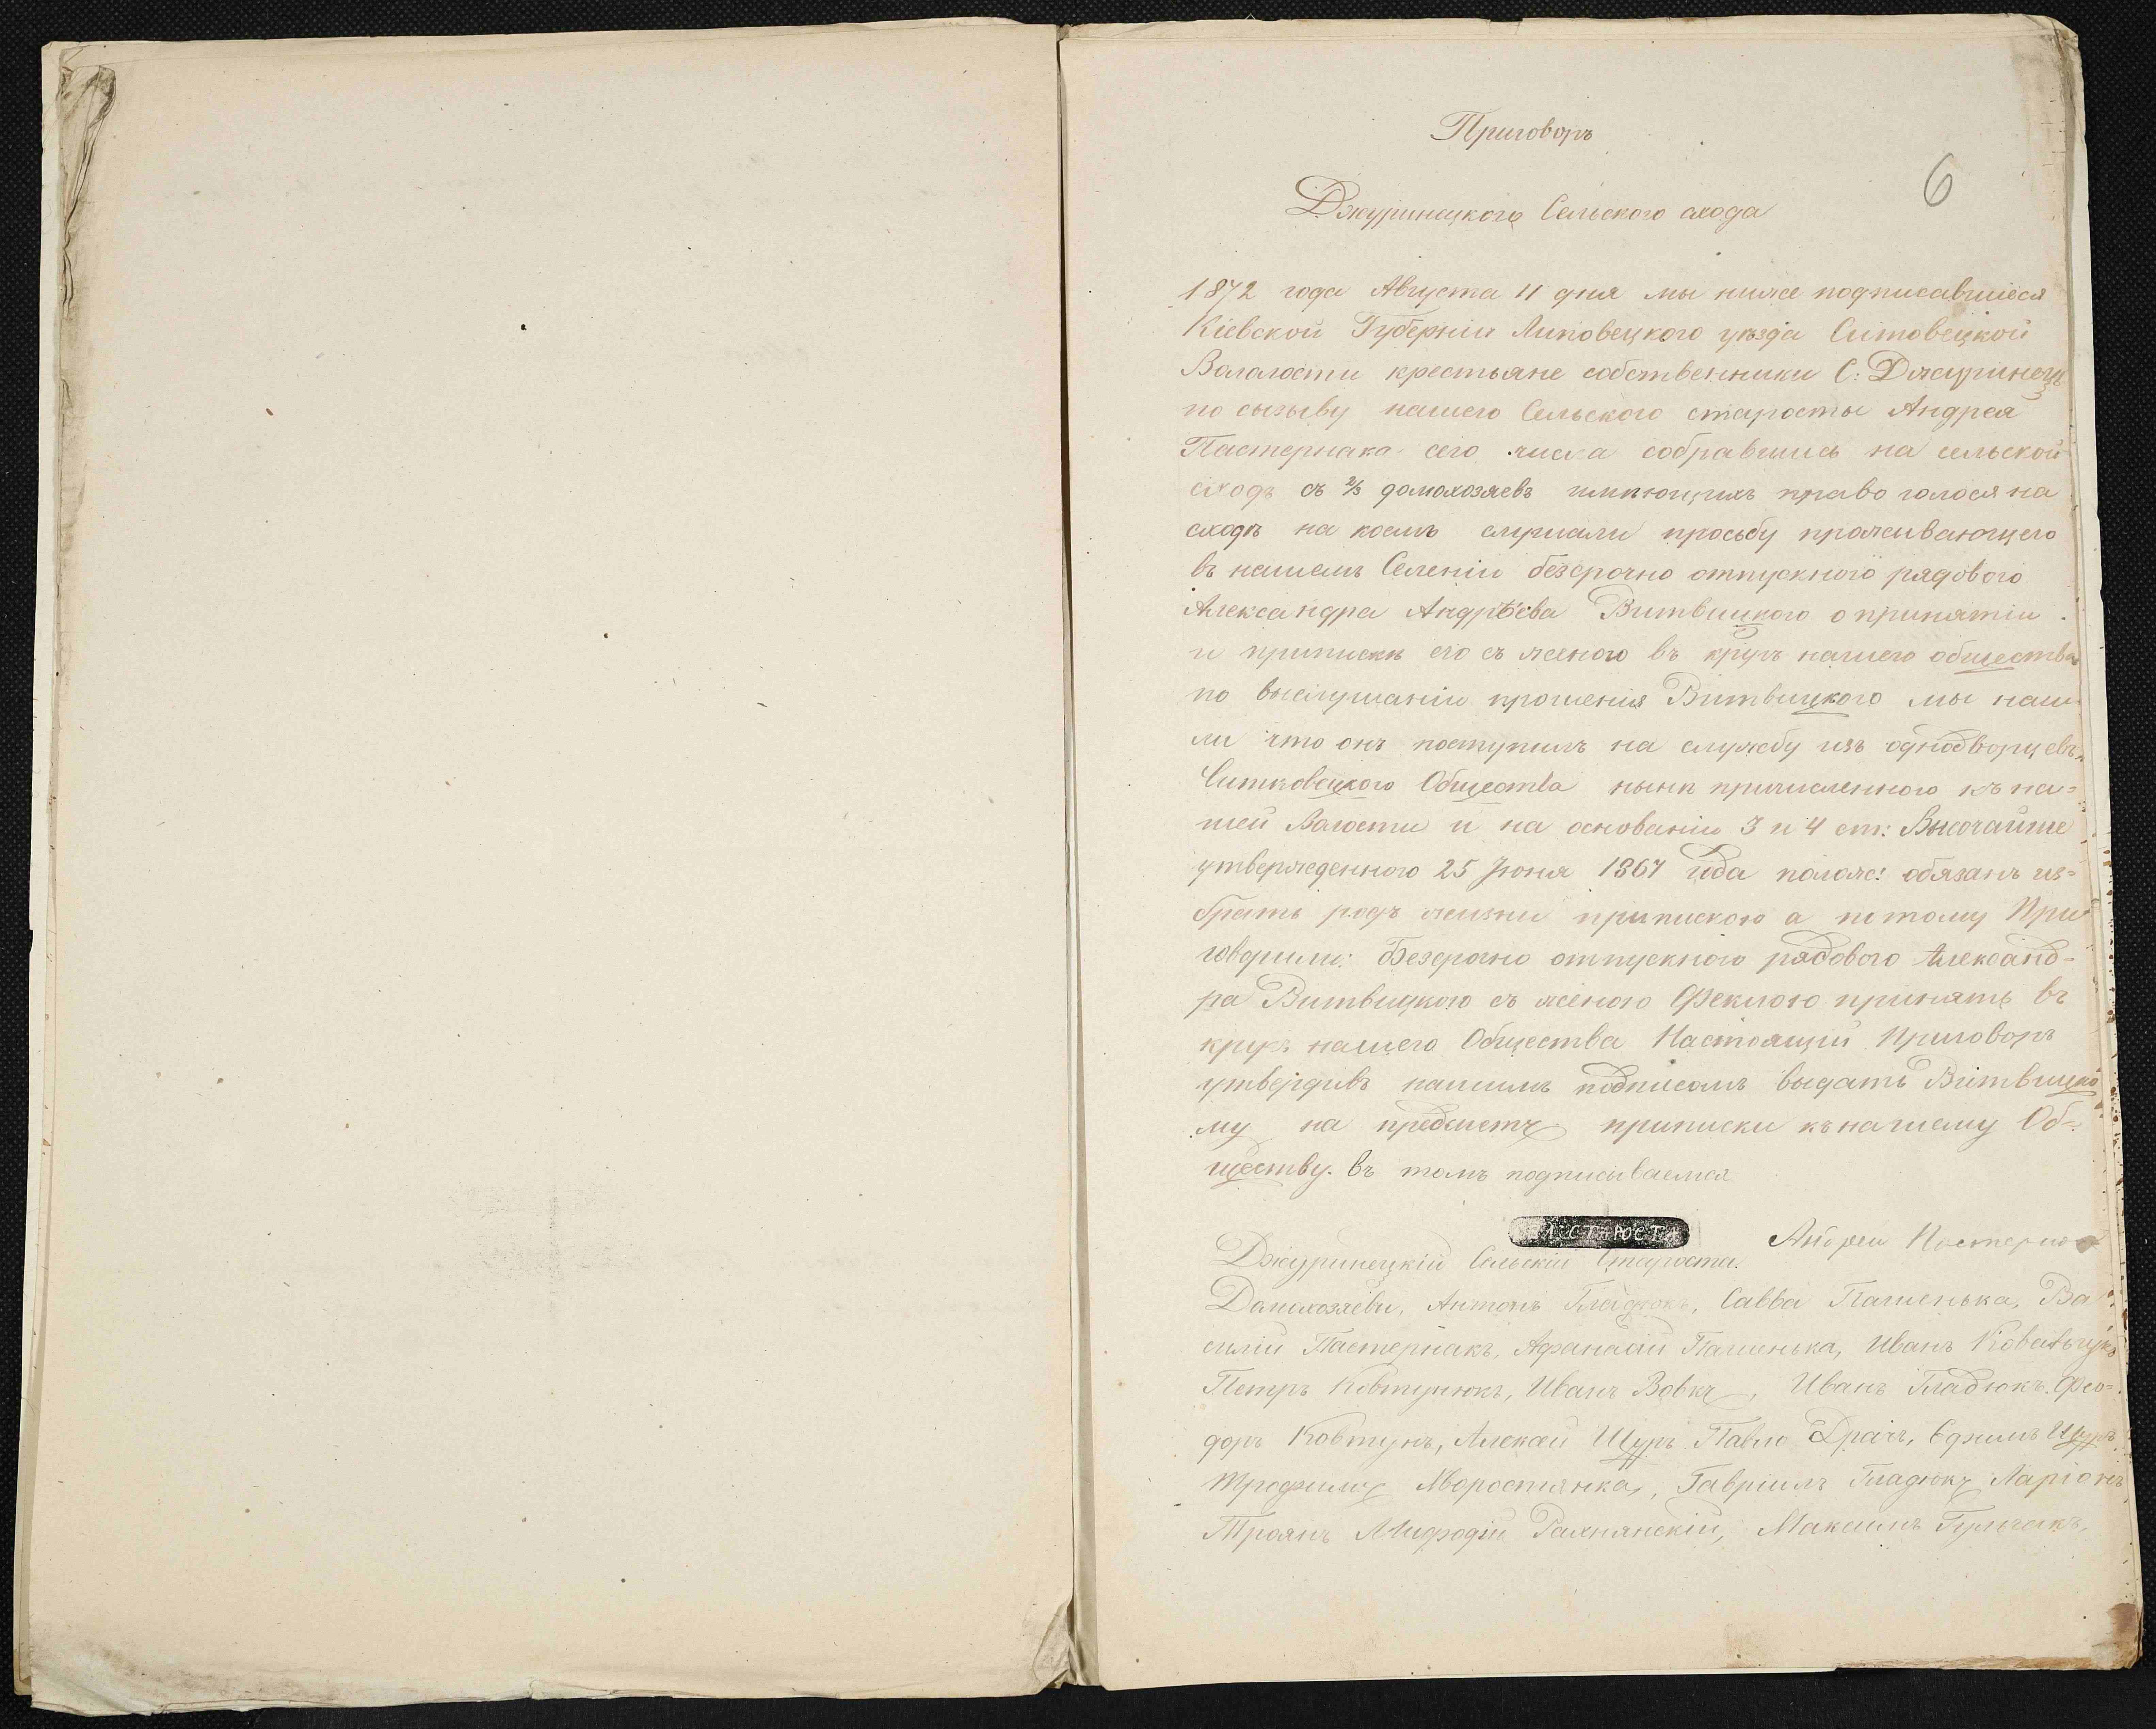 Приговоръ
6
Джуринецкого Сельского схода
1872 года Августа 11 дня мы ниже подписавшіеся
Кіевской Губерніи Липовецкого уѣзда Ситовецкой
Вололости крестьяне собственники С: Джуринецъ
по сызыву нашего Сельского старосты Андрея
Пастернака сего числа собравшись на сельской
сходъ съ 2/3 домохозяевъ имѣющихъ право голоса на
сходѣ на коемъ слушали просьбу проживающего
въ нашемъ Селеніи безсрочно отпускного рядового
Александра Андрѣева Витвицкого о принятіи
и припискѣ его съ женою въ кругъ нашего общества
по выслушаніи прошенія Витвицкого мы наш-
ли что онъ поступилъ на службу изъ однодворцевъ
Ситковецкого Общества нынѣ причисленного къ на=
шей Волости и на основаніи 3 и 4 ст: Высочайше
утвержденного 25 Іюня 1867 года полож: обязанъ из=
брать родъ жизни припискою а потому При
говорили: Безсрочно отпускного рядового Александ=
ра Витвицкого съ женою Феклою принять въ
кругъ нашего Общества Настоящій Приговоръ
утвердивъ нашимъ подписомъ выдать Витвицко
му на предметъ приписки къ нашему Об=
ществу. въ томъ подписываемся
СТАРОСТА
Андреи Пастернак
Джуринецкій Сельскій Староста.
Домихозяевы, Антонъ Гладюкъ, Савва Пашенька, Ва
силій Пастернакъ, Афанасій Пашенька, Иванъ Ковальчукъ
Петръ Ковтунюкъ, Иванъ Вовкъ, Иванъ Гладюкъ. Фео=
доръ Ковтунъ, Алексей Щуръ Павло Драчъ, Ефимъ Щуръ
Трофимъ Хворостянка, Гавріилъ Гладюкъ Ларіонъ
Троянъ Мифодій Рахнянскій, Максимъ Гульчакъ,